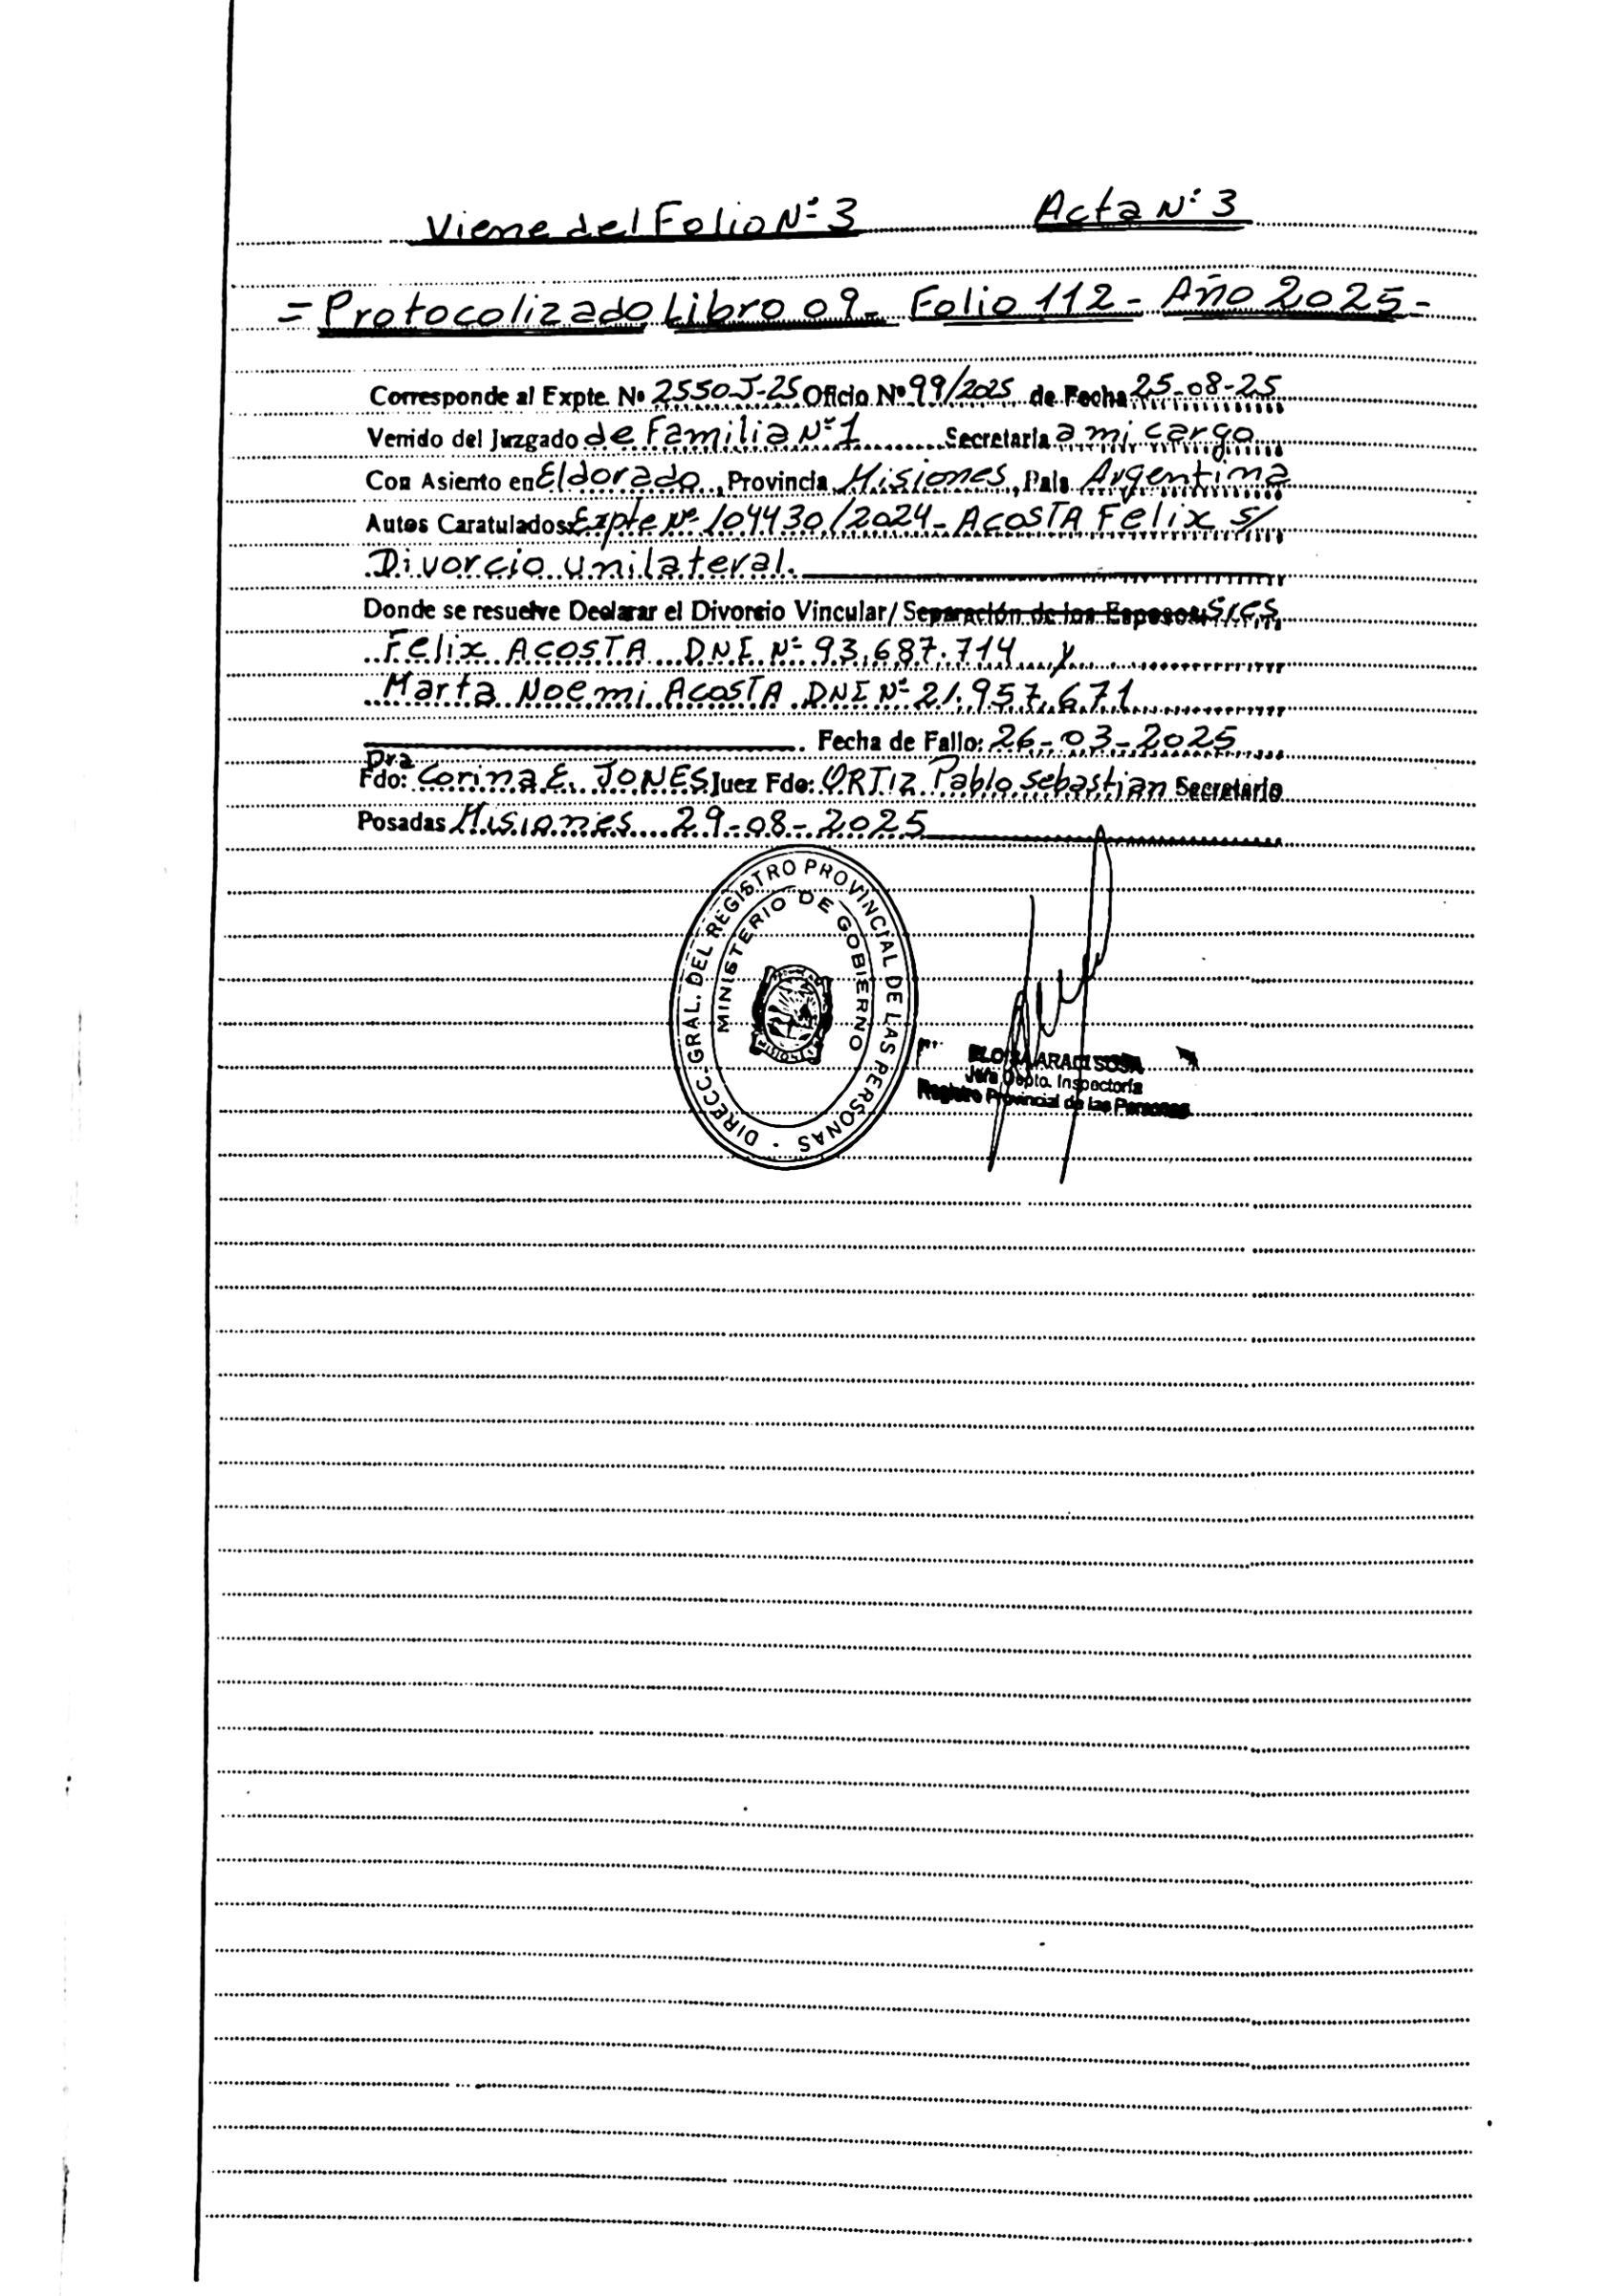 Viene del Folio Nº 3 Acta Nº 3
= Protocolizado Libro 09 - Folio 112 - Año 2025 -
Corresponde al Expte. Nº 2550-J-25 Oficio Nº 99/2025 de Fecha 25-08-25
Venido del Juzgado de Familia Nº 1 Secretaria a mi cargo
Con Asiento en Eldorado, Provincia Misiones, Pais Argentina
Autos Caratulados: Expte Nº 104430/2024 - ACOSTA Felix S/
Divorcio unilateral.
Donde se resuelve Declarar el Divorcio Vincular/ Separación de los Esposos: Sres
Felix ACOSTA DNI Nº 93.687.714 y
Marta Noemi ACOSTA DNI Nº 21.957.671
Fecha de Fallo: 26-03-2025
Dra
Fdo: Corina E. JONES Juez Fdo: ORTIZ Pablo Sebastian Secretario
Posadas Misiones 29-08-2025
DIRECC. GRAL. DEL REGISTRO PROVINCIAL DE LAS PERSONAS -
MINISTERIO DE GOBIERNO
ARACI SOSA
Jefa Depto. Inspectoría
Registro Provincial de las Personas